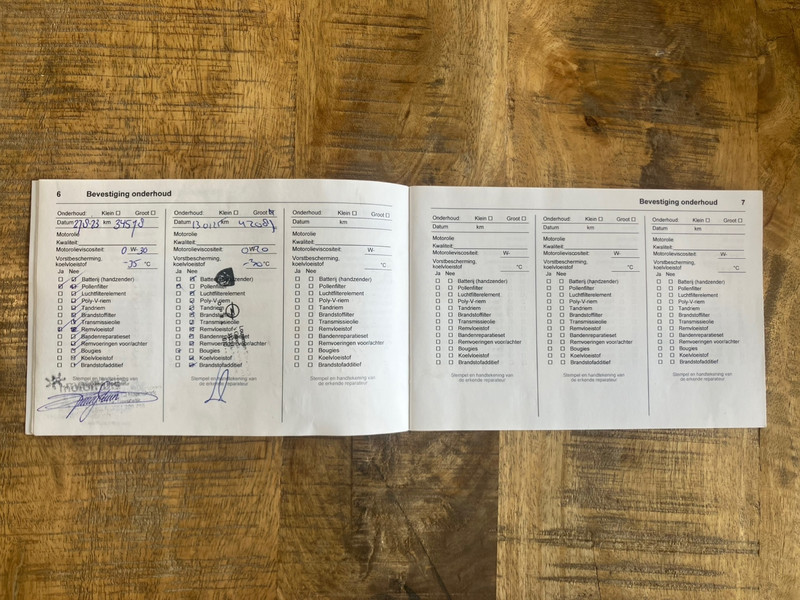 6 Bevestiging onderhoud
Onderhoud: Klein Groot
Datum 27-8-23 km 34578
Motorolie
Kwaliteit:
Motorolieviscositeit: 0 W-30
Vorstbescherming,
koelvloeistof -35 °C
Ja Nee
Batterij (handzender)
Pollenfilter
Luchtfilterelement
Poly-V-riem
Tandriem
Brandstoffilter
Transmissieolie
Remvloeistof
Bandenreparatieset
Remvoeringen voor/achter
Bougies
Koelvloeistof
Brandstofadditief
Stempel en handtekening van
Onderhoud: Klein Groot
Datum km
Motorolie
Kwaliteit:
Motorolieviscositeit:
0W20
Vorstbescherming,
koelvloeistof -30 °C
Ja Nee
Batterij (handzender)
Pollenfilter
Luchtfilterelement
Poly-V-riem
Tandriem
Brandstoffilter
Transmissieolie
Remvloeistof
Bandenreparatieset
Remvoeringen voor/achter
Bougies
Koelvloeistof
Brandstofadditief
Stempel en handtekening van
de erkende reparateur
Onderhoud: Klein Groot
Datum km
Motorolie
Kwaliteit:
Motorolieviscositeit: W-
Vorstbescherming,
koelvloeistof °C
Ja Nee
Batterij (handzender)
Pollenfilter
Luchtfilterelement
Poly-V-riem
Tandriem
Brandstoffilter
Transmissieolie
Remvloeistof
Bandenreparatieset
Remvoeringen voor/achter
Bougies
Koelvloeistof
Brandstofadditief
Stempel en handtekening van
de erkende reparateur
Bevestiging onderhoud 7
Onderhoud: Klein Groot
Datum km
Motorolie
Kwaliteit:
Motorolieviscositeit: W-
Vorstbescherming,
koelvloeistof °C
Ja Nee
Batterij (handzender)
Pollenfilter
Luchtfilterelement
Poly-V-riem
Tandriem
Brandstoffilter
Transmissieolie
Remvloeistof
Bandenreparatieset
Remvoeringen voor/achter
Bougies
Koelvloeistof
Brandstofadditief
Stempel en handtekening van
de erkende reparateur
Onderhoud: Klein Groot
Datum km
Motorolie
Kwaliteit:
Motorolieviscositeit: W-
Vorstbescherming,
koelvloeistof °C
Ja Nee
Batterij (handzender)
Pollenfilter
Luchtfilterelement
Poly-V-riem
Tandriem
Brandstoffilter
Transmissieolie
Remvloeistof
Bandenreparatieset
Remvoeringen voor/achter
Bougies
Koelvloeistof
Brandstofadditief
Stempel en handtekening van
de erkende reparateur
Onderhoud: Klein Groot
Datum km
Motorolie
Kwaliteit:
Motorolieviscositeit: W-
Vorstbescherming,
koelvloeistof °C
Ja Nee
Batterij (handzender)
Pollenfilter
Luchtfilterelement
Poly-V-riem
Tandriem
Brandstoffilter
Transmissieolie
Remvloeistof
Bandenreparatieset
Remvoeringen voor/achter
Bougies
Koelvloeistof
Brandstofadditief
Stempel en handtekening van
de erkende reparateur